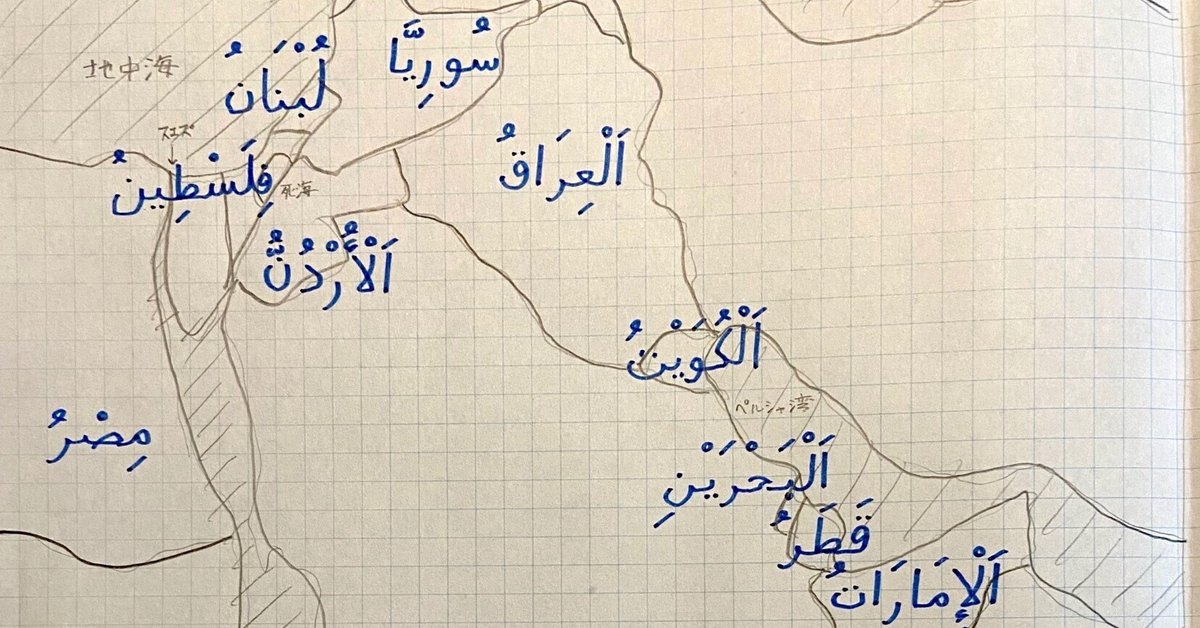 سُورِيَّا
لُبْنَانُ
地中海
スエズ
اَلْعِرَاقُ
فِلَسْطِينُ
死海
اَلْأُرْدُنُّ
اَلْكُوَيْتُ
ペルシャ湾
مِصْرُ
اَلْبَحْرَيْنِ
قَطَرُ
اَلْإِمَارَاتُ